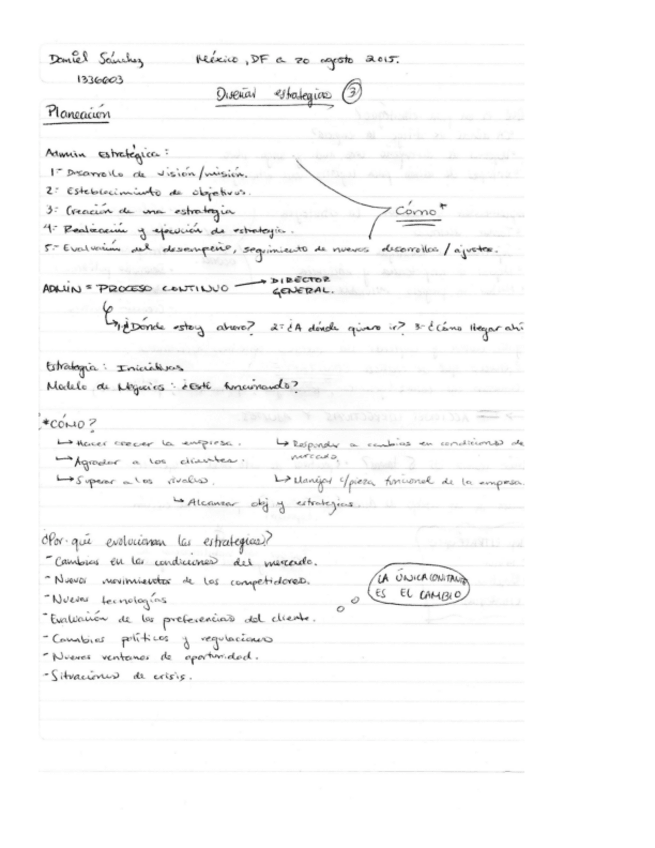 Daniel Sánchez México, DF a 20 agosto 2015.
1336603
Diseñar estrategias 3
Planeación
Admin estratégica:
1- Desarrollo de visión/misión.
2- Establecimiento de objetivos.
3- Creación de una estrategia
Cómo*
4- Realización y ejecución de estrategia.
5- Evaluación del desempeño, seguimiento de nuevos desarrollos / ajustes.
ADMIN = PROCESO CONTINUO → DIRECTOR GENERAL.
1-¿Dónde estoy ahora? 2-¿A dónde quiero ir? 3-¿Cómo llegar ahí
Estrategia: Iniciativas
Modelo de Negocios: ¿Está funcionando?
*CÓMO?
↳ Hacer crecer la empresa. ↳ Responder a cambios en condiciones de mercado.
↳ Agradar a los clientes.
↳ Superar a los rivales. ↳ Manejar c/pieza funcional de la empresa.
↳ Alcanzar obj y estrategias.
¿Por qué evolucionan las estrategias?
- Cambios en las condiciones del mercado.
- Nuevos movimientos de los competidores.
- Nuevas tecnologías
LA ÚNICA CONSTANTE
ES EL CAMBIO
- Evaluación de las preferencias del cliente.
- Cambios políticos y regulaciones
- Nuevas ventanas de oportunidad.
- Situaciones de crisis.